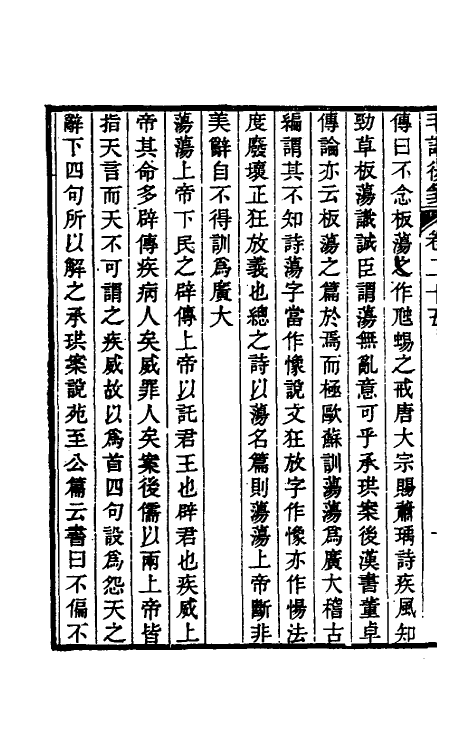 毛詩後箋 卷二十五
傳曰不念板蕩之作虺蜴之戒唐大宗賜蕭瑀詩疾風知
勁草板蕩識誠臣謂蕩無亂意可乎承珙案後漢書董卓
傳論亦云板蕩之篇於焉而極歐蘇訓蕩蕩爲廣大稽古
編謂其不知詩蕩字當作惕說文狂放字作惕亦作愓法
度廢壞正狂放義也總之詩以蕩名篇則蕩蕩上帝斷非
美辭自不得訓爲廣大
蕩蕩上帝下民之辟傳上帝以託君王也辟君也疾威上
帝其命多辟傳疾病人矣威罪人矣案後儒以兩上帝皆
指天言而天不可謂之疾威故以爲首四句設爲怨天之
辭下四句所以解之承珙案說苑至公篇云書曰不偏不